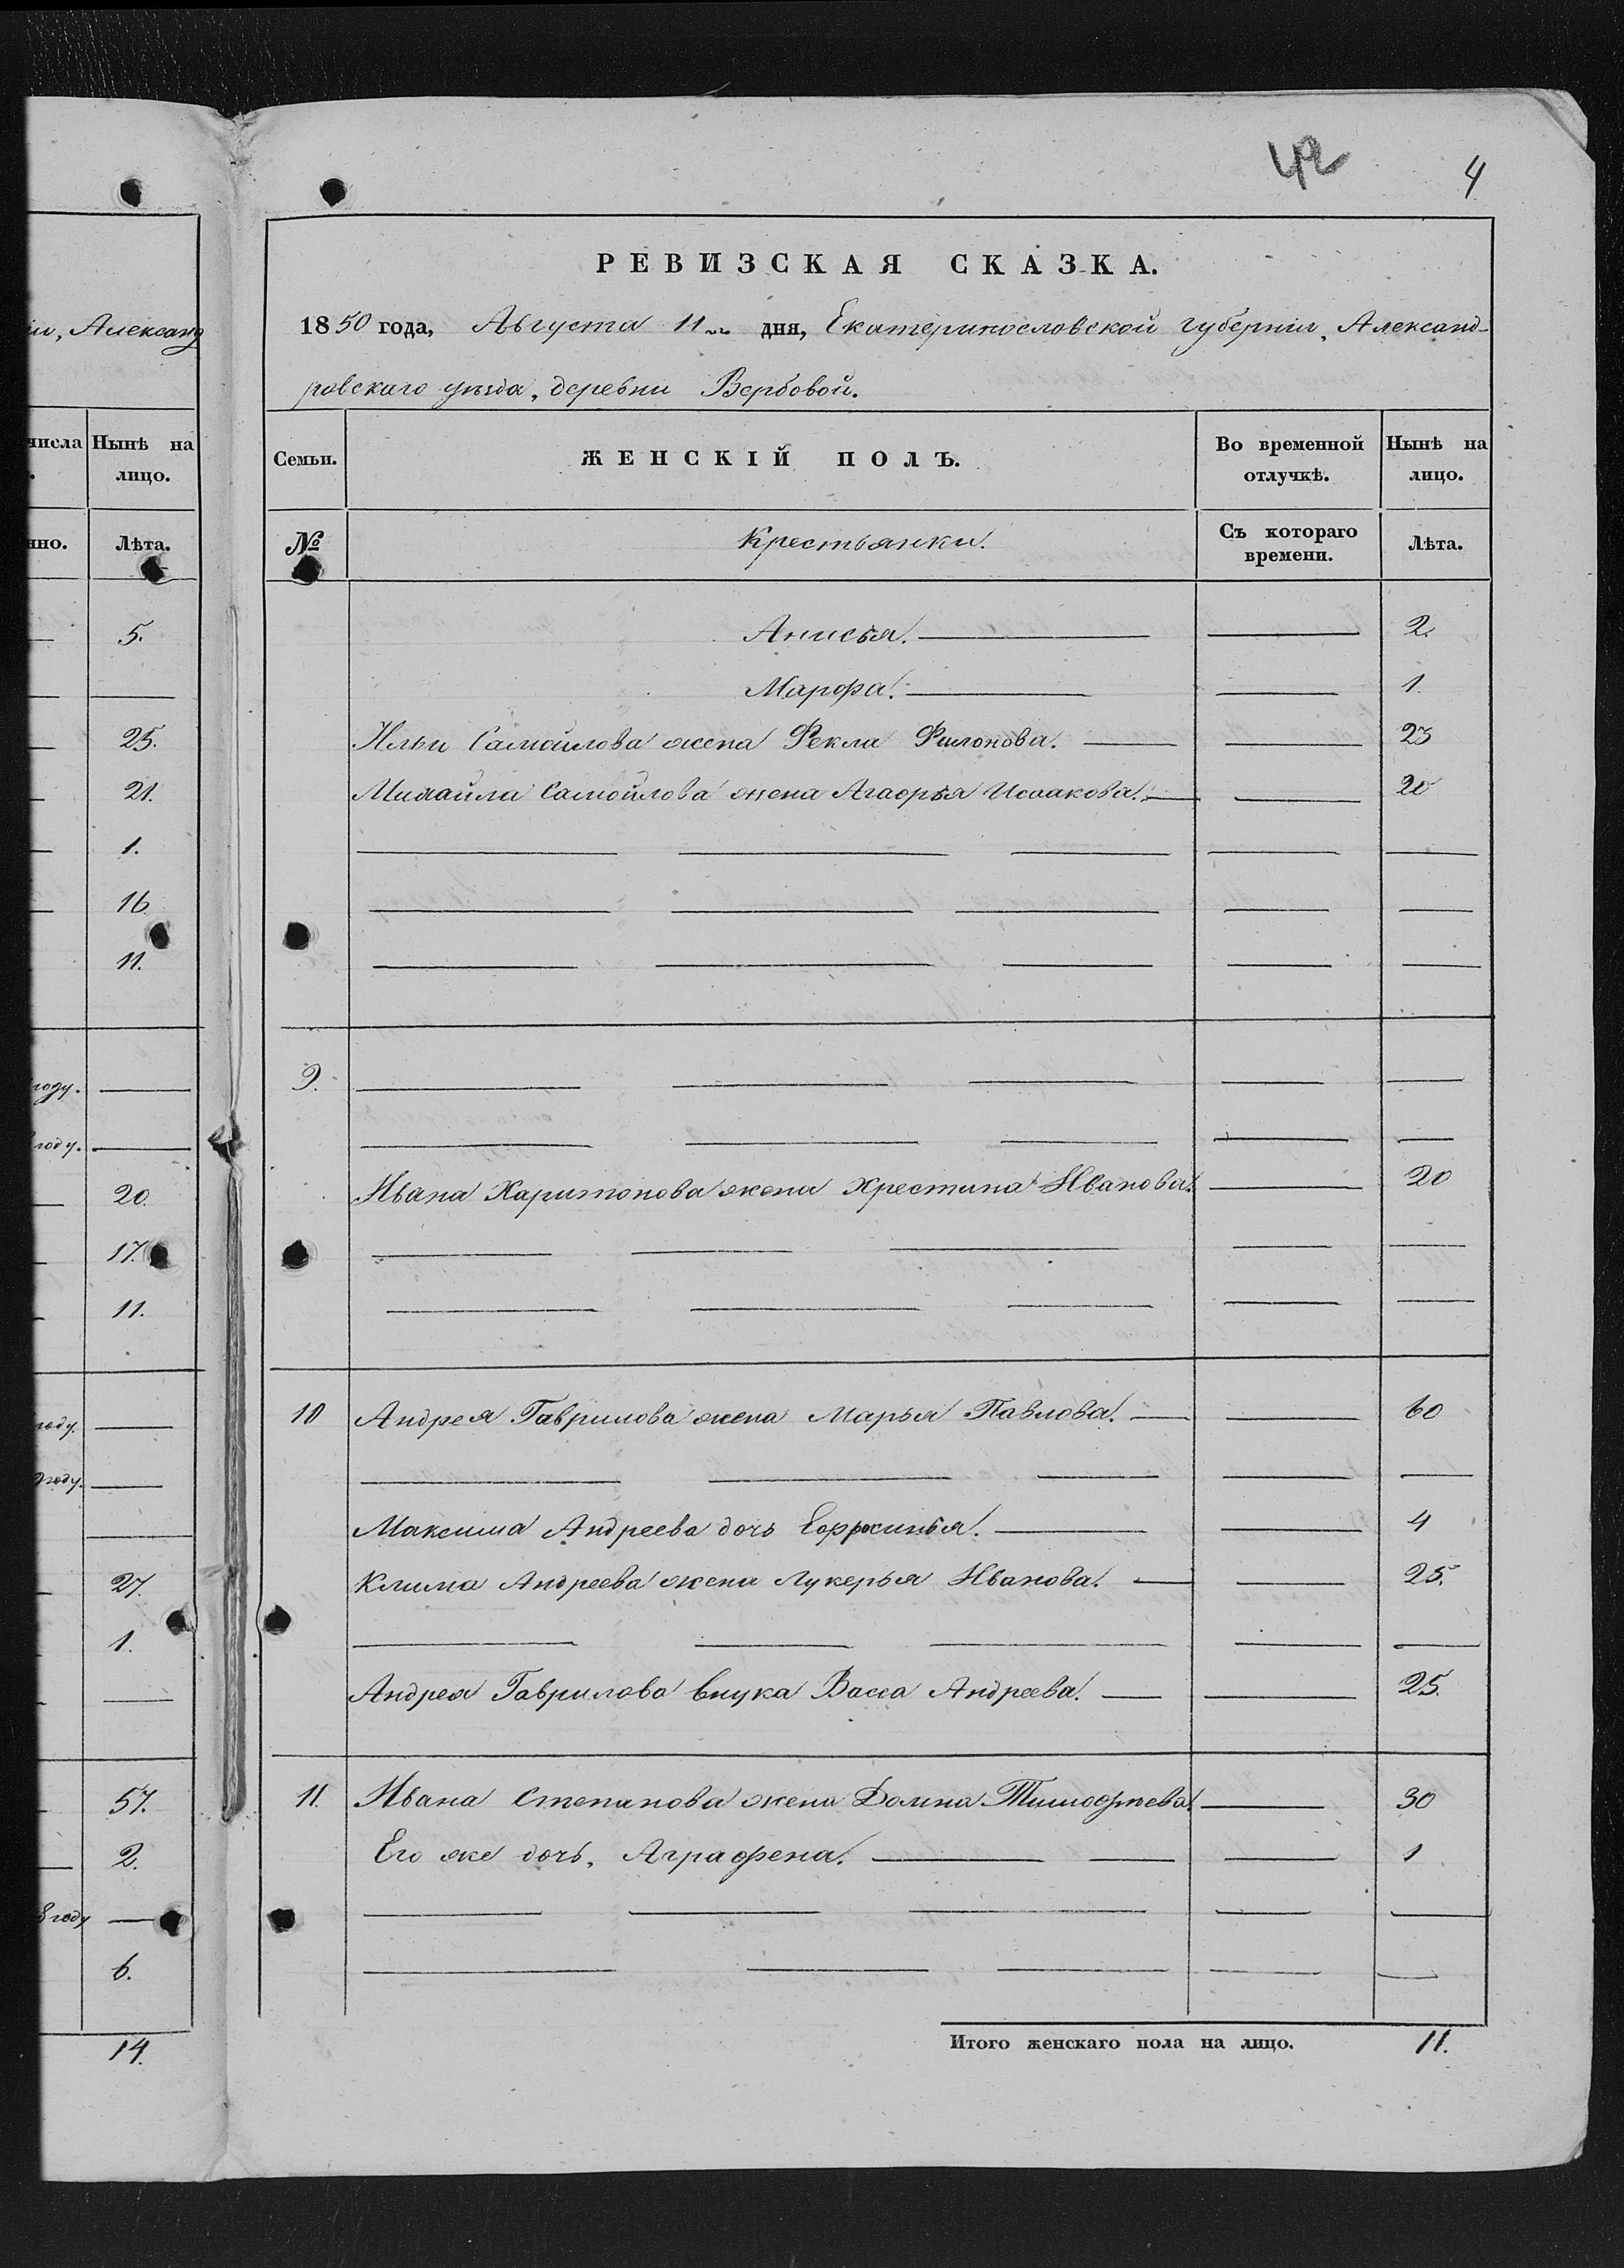 42 4
РЕВИЗСКАЯ СКАЗКА.
1850 года, Августа 11го дня, Екатеринославской губерніи, Александ-
ровскаго уѣзда, деревни Вербовой.
іи, Александ
числа Нынѣ на лицо.
нно. Лѣта.
Семьи. ЖЕНСКІЙ ПОЛЪ. Во временной отлучкѣ. Нынѣ на лицо.
№ Крестьянки. Съ котораго времени. Лѣта.
5.
Анисья. 2.
Марфа. 1.
25.
Ильи Самойлова жена Фекла Филонова. 23
21.
Михайла Самойлова жена Агафья Исаакова. 20
1.
16
11.
году.
9.
году.
20.
Ивана Харитонова жена Хрестина Иванова. 20
17.
11.
году.
10 Андрея Гаврилова жена Марья Павлова. 60
году.
Максима Андреева дочь Ефросинья. 4
27.
Клима Андреева жена Лукерья Иванова. 25.
1.
Андрея Гаврилова внука Васса Андреева. 25.
57.
11. Ивана Степанова жена Домна Тимофѣева. 30
2.
Его же дочь, Аграфена. 1
8 году
6.
14.
Итого женскаго пола на лицо. 11.